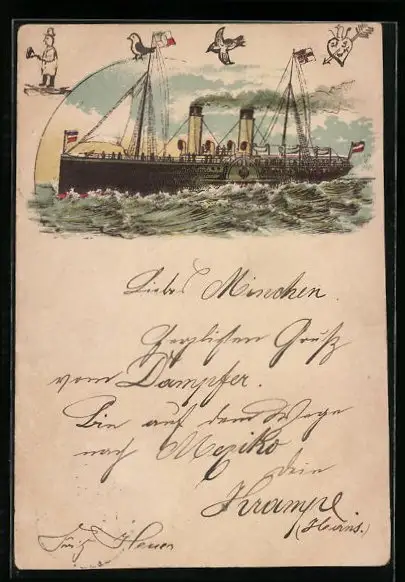 Liebes Minchen.
Herzlichen Gruß
vom Dampfer.
Bin auf dem Wege
nach Mexiko
dein
Krampe
(Heins.)
Fritz